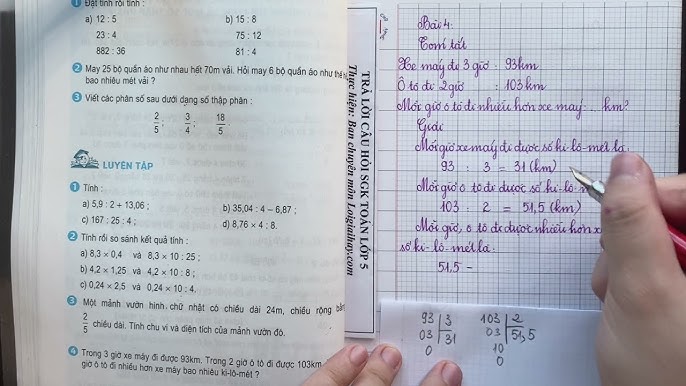 1 Đặt tính rồi tính :
a) 12 : 5 b) 15 : 8
23 : 4 75 : 12
882 : 36 81 : 4
2 May 25 bộ quần áo như nhau hết 70m vải. Hỏi may 6 bộ quần áo như thế
bao nhiêu mét vải ?
3 Viết các phân số sau dưới dạng số thập phân :
2/5 ; 3/4 ; 18/5
LUYỆN TẬP
1 Tính :
a) 5,9 : 2 + 13,06 ; b) 35,04 : 4 – 6,87 ;
c) 167 : 25 : 4 ; d) 8,76 x 4 : 8.
2 Tính rồi so sánh kết quả tính :
a) 8,3 x 0,4 và 8,3 x 10 : 25 ;
b) 4,2 x 1,25 và 4,2 x 10 : 8 ;
c) 0,24 x 2,5 và 0,24 x 10 : 4.
3 Một mảnh vườn hình chữ nhật có chiều dài 24m, chiều rộng
2/5 chiều dài. Tính chu vi và diện tích của mảnh vườn đó.
4 Trong 3 giờ xe máy đi được 93km. Trong 2 giờ ô tô đi được 103km
giờ ô tô đi nhiều hơn xe máy bao nhiêu ki-lô-mét ?
TRẢ LỜI CÂU HỎI SGK TOÁN LỚP 5
Thực hiện: Ban chuyên môn Loigiaihay.com
Bài 4.
Tóm tắt
Xe máy đi 3 giờ : 93km
Ô tô đi 2 giờ : 103km
Mỗi giờ ô tô đi nhiều hơn xe máy ... km?
Giải
Mỗi giờ xe máy đi được số ki-lô-mét là:
93 : 3 = 31 (km)
Mỗi giờ ô tô đi được số ki-lô-m
103 : 2 = 51,5 (km)
Mỗi giờ, ô tô đi được nhiều hơn x
số ki-lô-mét là:
51,5 –
93 3 103 2
03 31 03 51,5
0 10
0